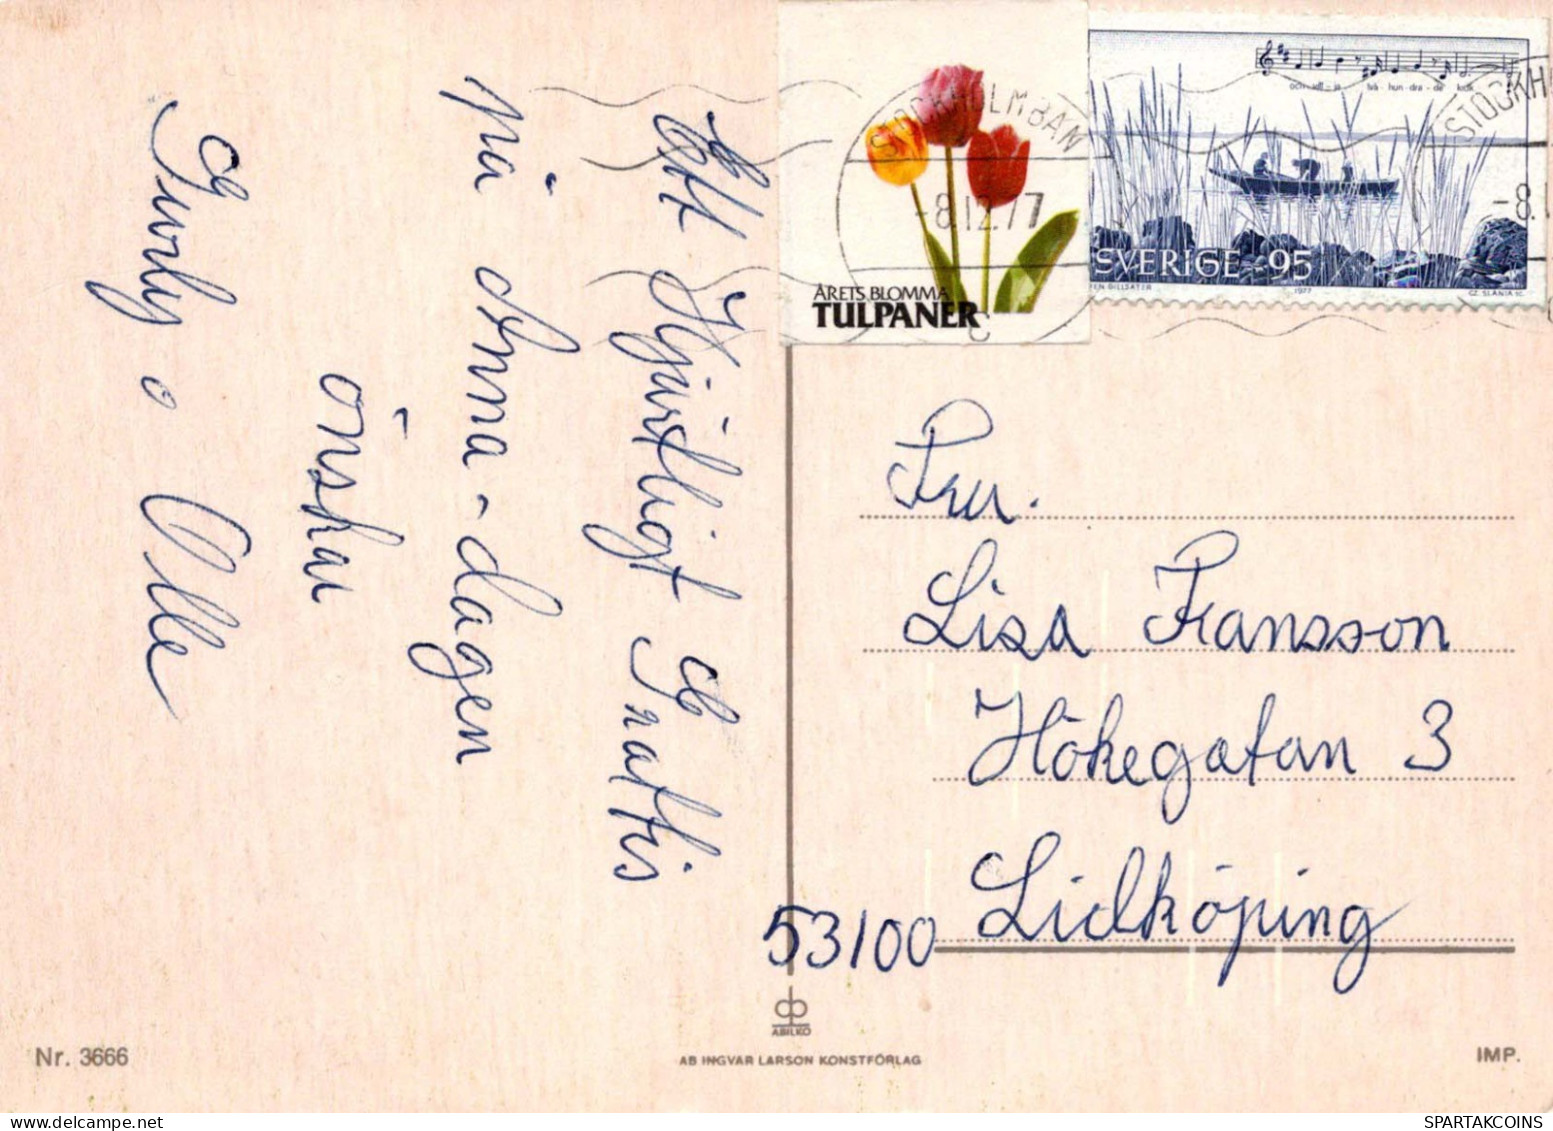 Ett Hjärtligt Grattis
på Anna-dagen
önskar
Gurly o Olle
STOCKHOLM BAN
-8.12.77
ÅRETS BLOMMA
TULPANER
SVERIGE 95
1977
CZ. SLANIA SC.
STOCKH
-8.1
Fru.
Lisa Fransson
Hökegatan 3
53100 Lidköping
ABILKO
Nr. 3666
AB INGVAR LARSON KONSTFÖRLAG
IMP.
SPARTAKCOINS